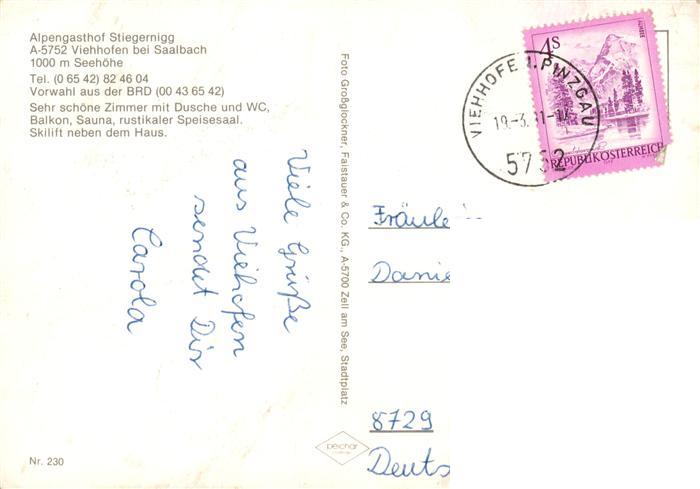 Alpengasthof Stiegernigg
A-5752 Viehhofen bei Saalbach
1000 m Seehöhe
Tel. (0 65 42) 82 46 04
Vorwahl aus der BRD (00 43 65 42)
Sehr schöne Zimmer mit Dusche und WC,
Balkon, Sauna, rustikaler Speisesaal.
Skilift neben dem Haus.
Viele Grüße
aus Viehofen
sendet Dir
Carola
Nr. 230
Foto Großglockner, Faistauer & Co. KG., A-5700 Zell am See, Stadtplatz
peichar
VIEHHOFEN I. PINZGAU
19.-3.81-1
5752
4S
REPUBLIK ÖSTERREICH
Fräule
Danie
8729
Deuts